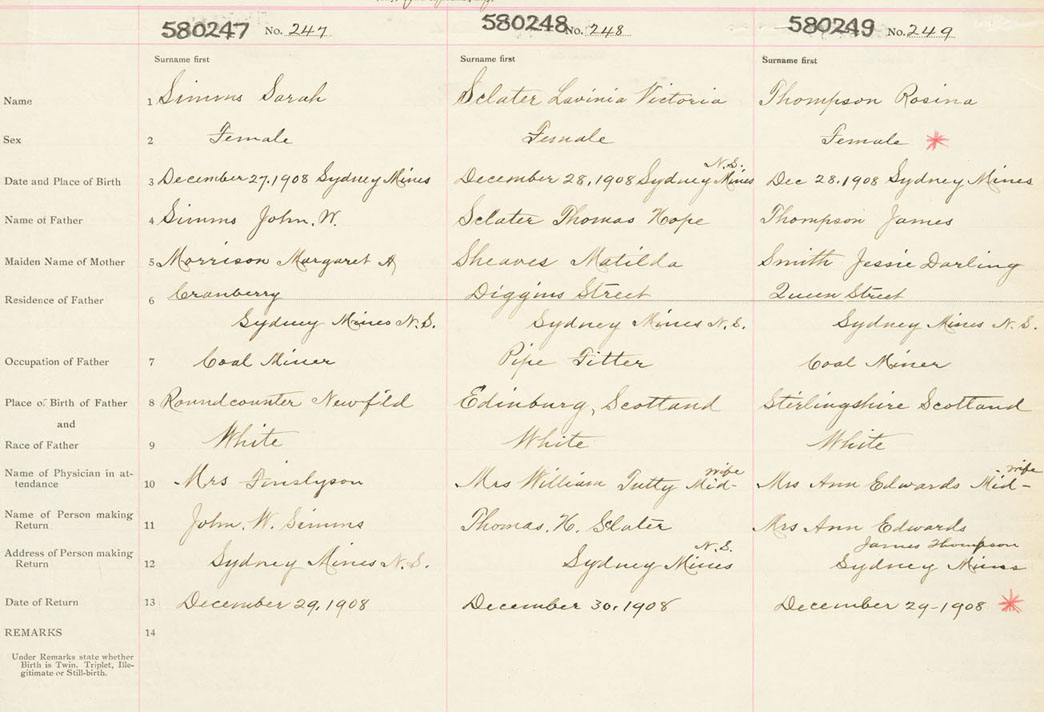 580247 No. 247 580248 No. 248 580249 No. 249
Surname first Surname first Surname first
Name 1 Simms Sarah Sclater Lavinia Victoria Thompson Rosina
Sex 2 Female Female Female *
N.S.
Date and Place of Birth 3 December 27, 1908 Sydney Mines December 28, 1908 Sydney Mines Dec 28. 1908 Sydney Mines
Name of Father 4 Simms John. W. Sclater Thomas Hope Thompson James
Maiden Name of Mother 5 Morrison Margaret A Sheaves Matilda Smith Jessie Darling
Residence of Father 6 Cranberry Diggins Street Queen Street
Sydney Mines N.S. Sydney Mines N.S. Sydney Mines N.S.
Occupation of Father 7 Coal Miner Pipe Fitter Coal Miner
Place of Birth of Father 8 Roundcounter Newfild Edinburg, Scottland Stirlingshire Scottland
and
Race of Father 9 White White White
wife wife
Name of Physician in at-
tendance 10 Mrs Finslyson Mrs William Tutty Mid- Mrs Ann Edwards Mid-
Name of Person making
Return 11 John. W. Simms Thomas. H. Sclater Mrs Ann Edwards
N.S. James Thompson
Address of Person making
Return 12 Sydney Mines N.S. Sydney Mines Sydney Mines
Date of Return 13 December 29, 1908 December 30, 1908 December 29-1908 *
REMARKS 14
Under Remarks state whether
Birth is Twin, Triplet, Ille-
gitimate or Still-birth.